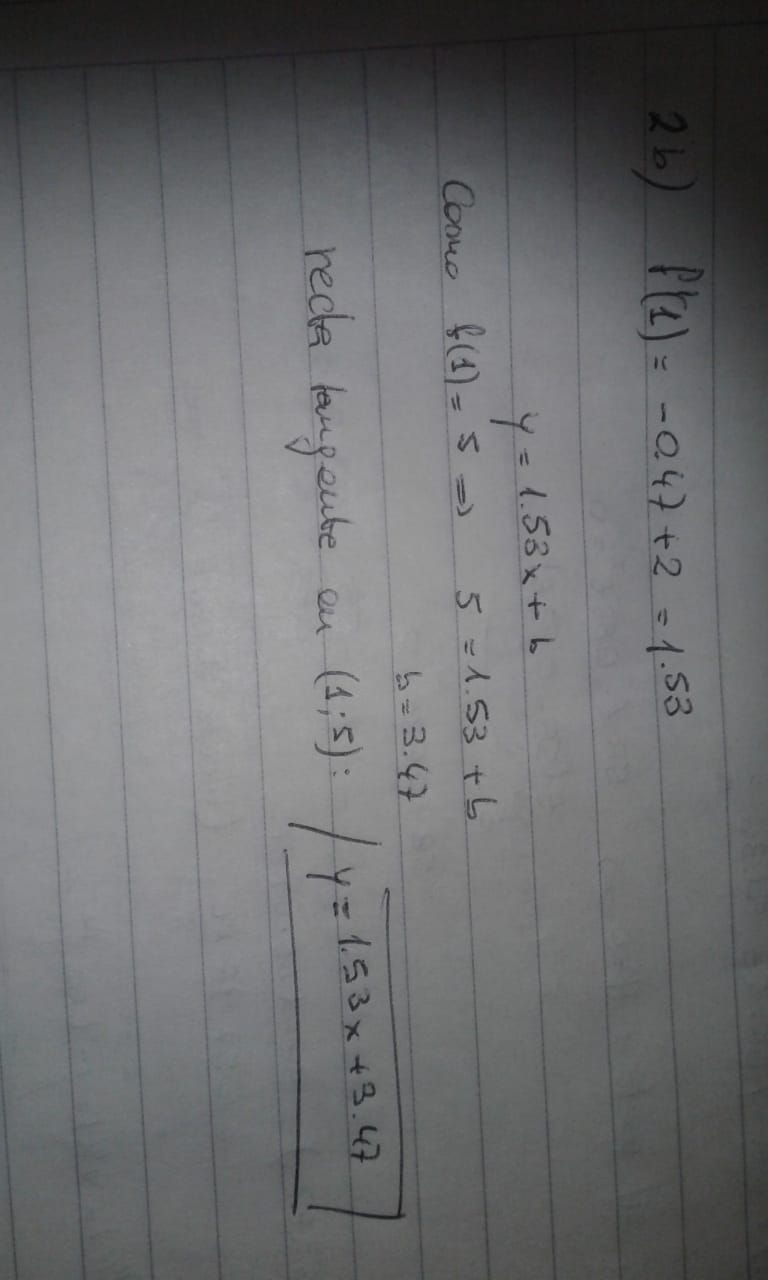 2b) f'(1) = -0.47 + 2 = 1.53
y = 1.53x + b
Como f(1) = 5 => 5 = 1.53 + b
b = 3.47
recta tangente en (1;5): y = 1.53x + 3.47